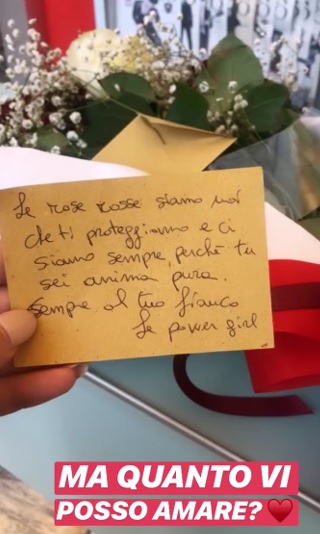 Le rose rosse siamo noi
che ti proteggiamo e ci
siamo sempre, perchè tu
sei anima pura.
Sempre al tuo fianco
Le power girl
MA QUANTO VI
POSSO AMARE? ♥️